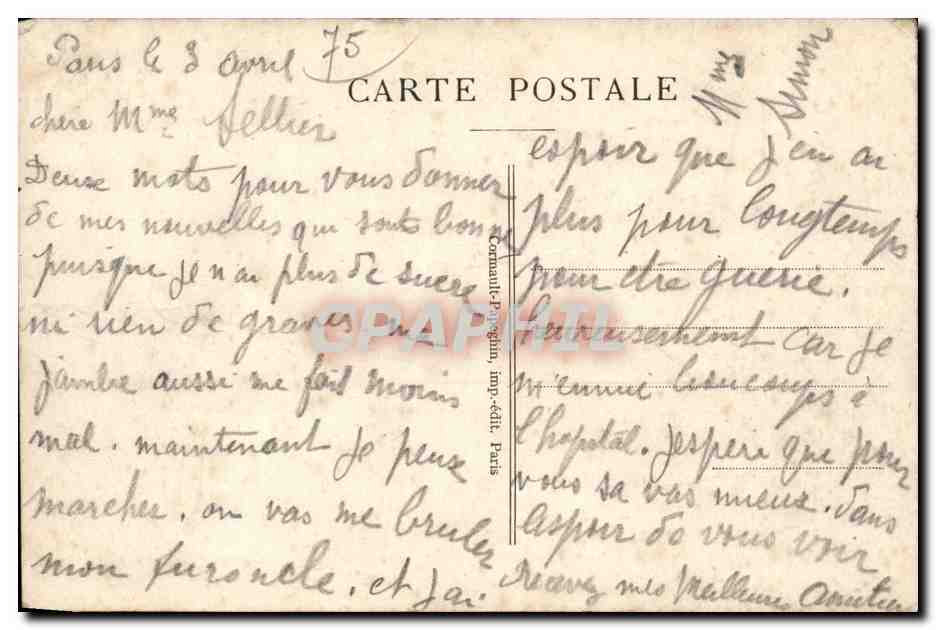 75
Paris le 3 avril
CARTE POSTALE
chere Mme Sellier
Deuxe mots pour vous donner
de mes nouvelles qui sonts bonne
puisque je n ai plus de sucre
ni rien de graves ma
jambe aussi me fait moins
mal. maintenant je peux
marcher. on vas me bruler
mon furoncle. et j'ai
espoir que j'en ai
plus pour longtemps
pour etre guerie.
heureusement car je
m'ennuie beaucoups à
l'hopital. j'espere que pour
vous sa vas mieux. dans
l'espoir de vous voir
Recevez mes Meilleures Amitiés
Mme
Simon
Cormault-Papeghin, imp.-édit. Paris
CPAPHIL